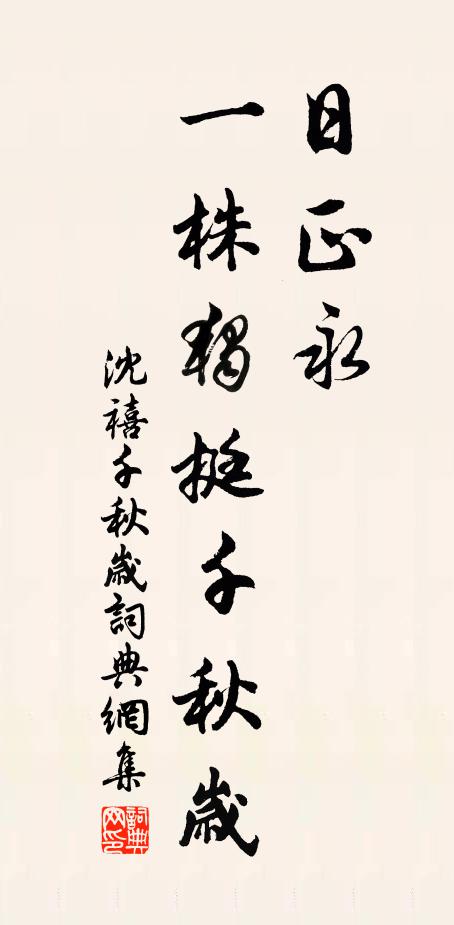 日正永
一株獨挺千秋歲
沈禧千秋歲詞典網集
詞典網印